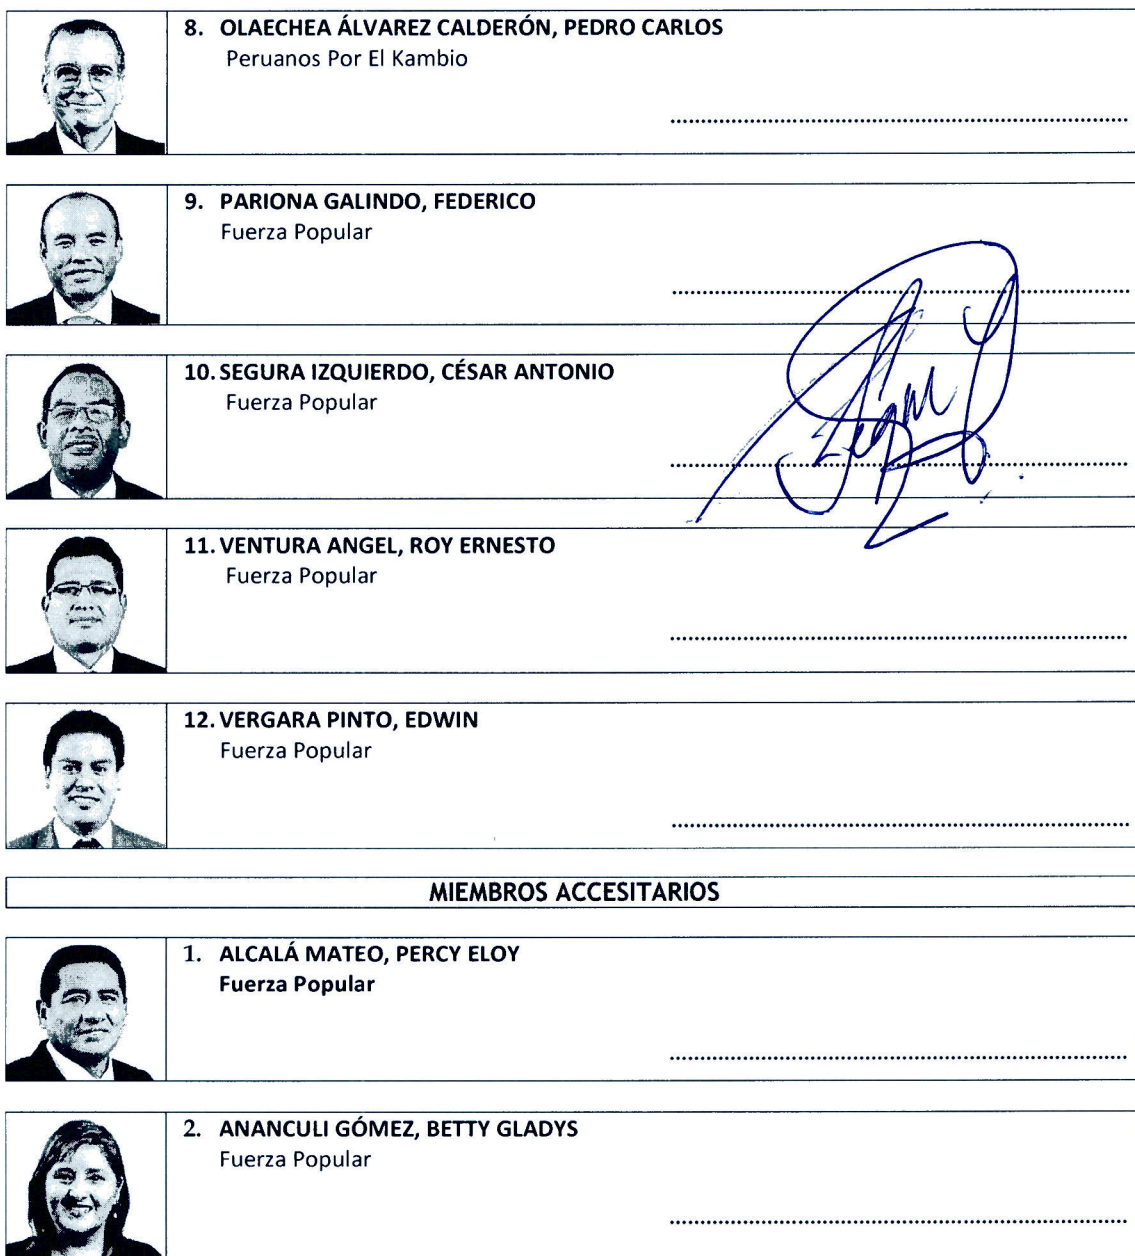 8. OLAECHEA ÁLVAREZ CALDERÓN, PEDRO CARLOS
Peruanos Por El Kambio
9. PARIONA GALINDO, FEDERICO
Fuerza Popular
10. SEGURA IZQUIERDO, CÉSAR ANTONIO
Fuerza Popular
11. VENTURA ANGEL, ROY ERNESTO
Fuerza Popular
12. VERGARA PINTO, EDWIN
Fuerza Popular
MIEMBROS ACCESITARIOS
1. ALCALÁ MATEO, PERCY ELOY
Fuerza Popular
2. ANANCULI GÓMEZ, BETTY GLADYS
Fuerza Popular